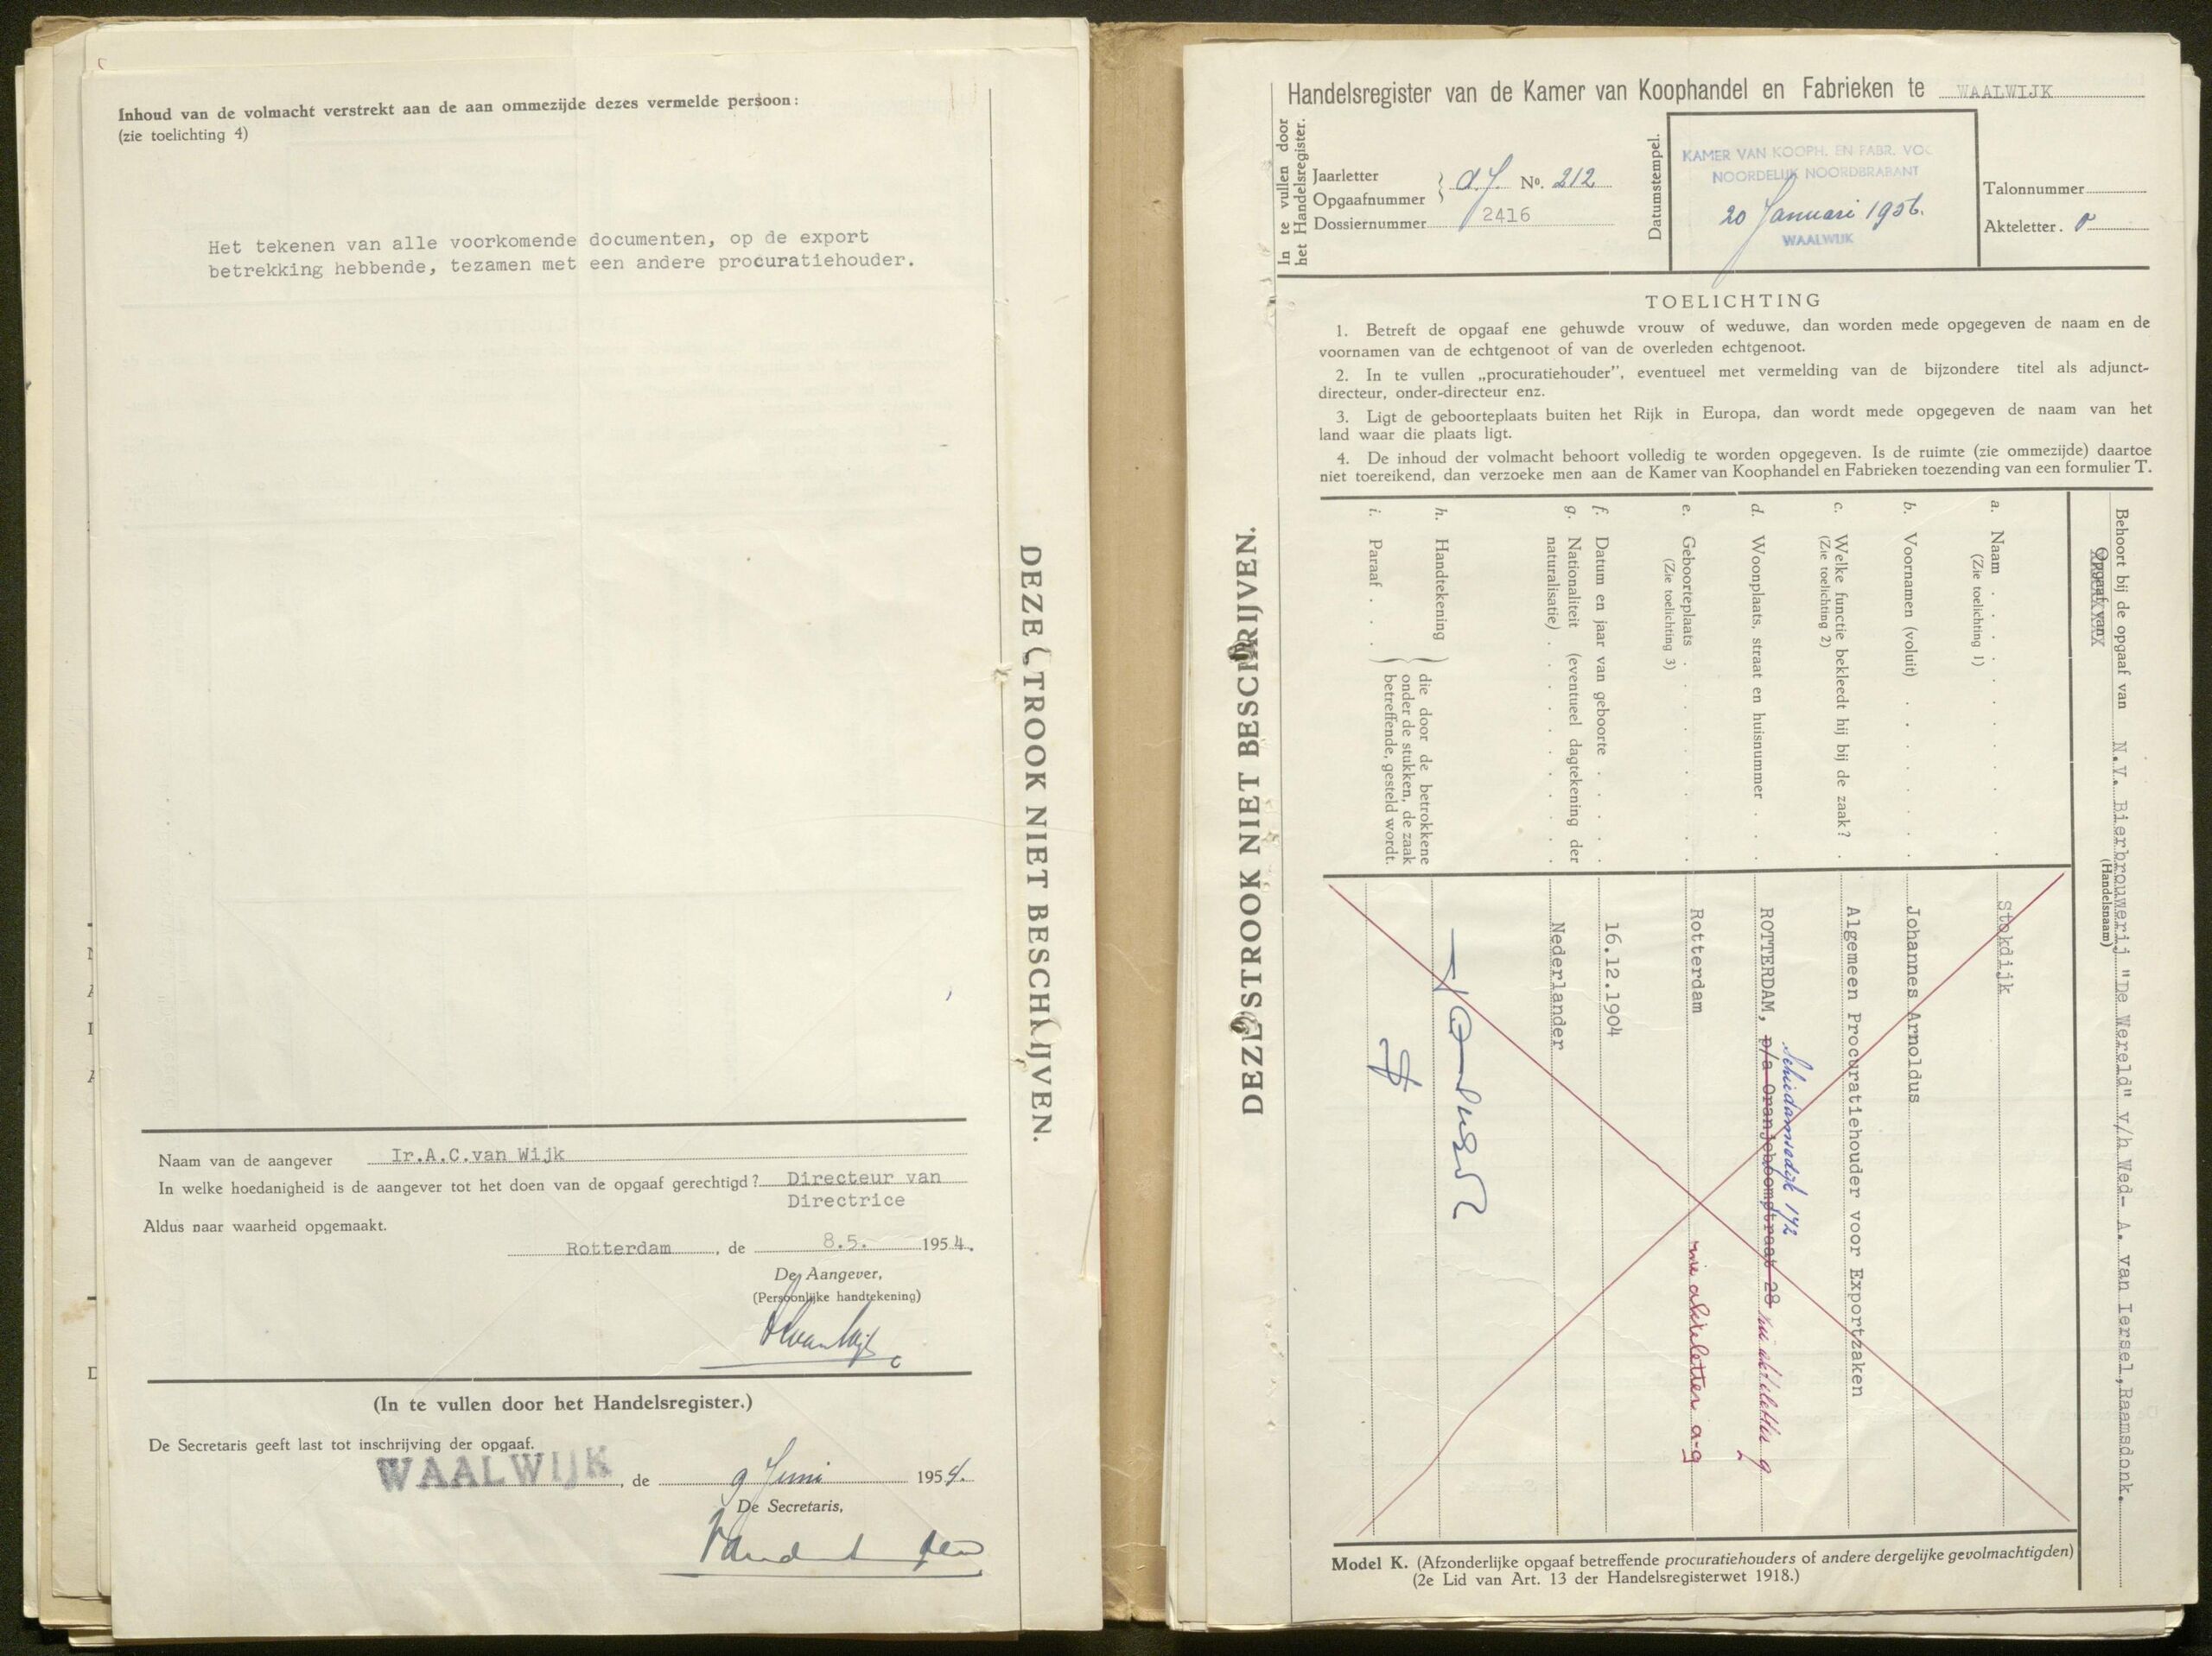 Inhoud van de volmacht verstrekt aan de aan ommezijde dezes vermelde persoon:
(zie toelichting 4)
Het tekenen van alle voorkomende documenten, op de export
betrekking hebbende, tezamen met een andere procuratiehouder.
DEZE STROOK NIET BESCHRIJVEN.
Naam van de aangever Ir.A.C.van Wijk
In welke hoedanigheid is de aangever tot het doen van de opgaaf gerechtigd? Directeur van
Directrice
Aldus naar waarheid opgemaakt.
Rotterdam, de 8.5. 1954.
De Aangever,
(Persoonlijke handtekening)
(In te vullen door het Handelsregister.)
De Secretaris geeft last tot inschrijving der opgaaf.
WAALWIJK, de 9 Juni 1954.
De Secretaris,
Handelsregister van de Kamer van Koophandel en Fabrieken te WAALWIJK
In te vullen door
het Handelsregister.
Jaarletter
Opgaafnummer
No. 212
Dossiernummer 2416
Datumstempel.
KAMER VAN KOOPH. EN FABR. VOO
NOORDELIJK NOORDBRABANT
20 Januari 1956.
WAALWIJK
Talonnummer
Akteletter.
TOELICHTING
1. Betreft de opgaaf ene gehuwde vrouw of weduwe, dan worden mede opgegeven de naam en de
voornamen van de echtgenoot of van de overleden echtgenoot.
2. In te vullen „procuratiehouder", eventueel met vermelding van de bijzondere titel als adjunct-
directeur, onder-directeur enz.
3. Ligt de geboorteplaats buiten het Rijk in Europa, dan wordt mede opgegeven de naam van het
land waar die plaats ligt.
4. De inhoud der volmacht behoort volledig te worden opgegeven. Is de ruimte (zie ommezijde) daartoe
niet toereikend, dan verzoeke men aan de Kamer van Koophandel en Fabrieken toezending van een formulier T.
DEZE STROOK NIET BESCHRIJVEN.
Behoort bij de opgaaf van N.V. Bierbrouwerij "De Wereld" v/h Wed- A. van Iersel, Raamsdonk.
Opgaaf van
(Handelsnaam)
a. Naam . . . . . . . . Stokdijk
(Zie toelichting 1)
b. Voornamen (voluit) . . . . . Johannes Arnoldus
c. Welke functie bekleedt hij bij de zaak? . Algemeen Procuratiehouder voor Exportzaken
(Zie toelichting 2)
Schiedamsedijk 142
d. Woonplaats, straat en huisnummer . . ROTTERDAM, p/a Oranjeboomstraat 28 zie akteletter q
e. Geboorteplaats . . . . . . Rotterdam zie akteletter a-g
(Zie toelichting 3)
f. Datum en jaar van geboorte . . . . 16.12.1904
g. Nationaliteit (eventueel dagtekening der
naturalisatie) . . . . . . . Nederlander
h. Handtekening
i. Paraaf . . .
die door de betrokkene
onder de stukken, de zaak
betreffende, gesteld wordt.
Model K. (Afzonderlijke opgaaf betreffende procuratiehouders of andere dergelijke gevolmachtigden)
(2e Lid van Art. 13 der Handelsregisterwet 1918.)